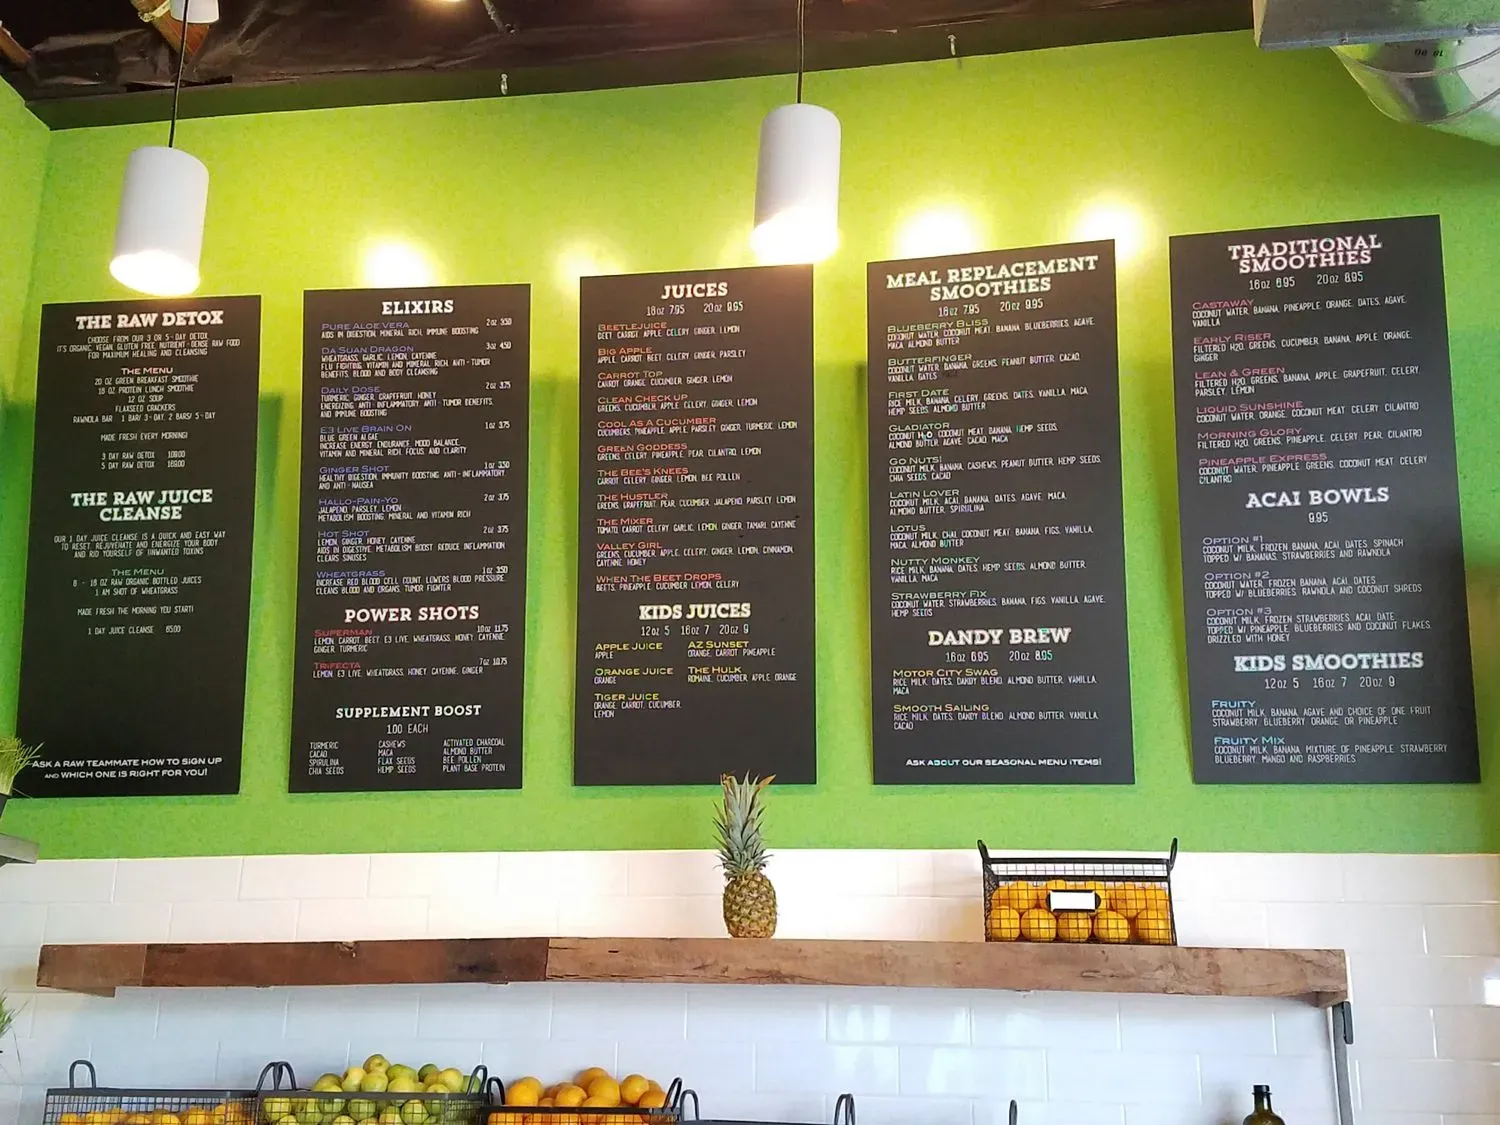 THE RAW DETOX
CHOOSE FROM OUR 3 OR 5-DAY DETOX
IT'S ORGANIC, VEGAN, GLUTEN FREE, NUTRIENT-DENSE RAW FOOD
FOR MAXIMUM HEALING AND CLEANSING
THE MENU
20 OZ GREEN BREAKFAST SMOOTHIE
16 OZ PROTEIN LUNCH SMOOTHIE
12 OZ SOUP
FLAXSEED CRACKERS
RAWNOLA BAR 1 BAR/ 3-DAY, 2 BARS/ 5-DAY
MADE FRESH EVERY MORNING!
3 DAY RAW DETOX 109.00
5 DAY RAW DETOX 169.00
THE RAW JUICE
CLEANSE
OUR 1 DAY JUICE CLEANSE IS A QUICK AND EASY WAY
TO RESET, REJUVENATE AND ENERGIZE YOUR BODY
AND RID YOURSELF OF UNWANTED TOXINS
THE MENU
6 - 16 OZ RAW ORGANIC BOTTLED JUICES
1 AM SHOT OF WHEATGRASS
MADE FRESH THE MORNING YOU START!
1 DAY JUICE CLEANSE 65.00
ASK A RAW TEAMMATE HOW TO SIGN UP
AND WHICH ONE IS RIGHT FOR YOU!
ELIXIRS
PURE ALOE VERA 2oz 3.50
AIDS IN DIGESTION, MINERAL RICH, IMMUNE BOOSTING
DA SUAN DRAGON 3oz 4.50
WHEATGRASS, GARLIC, LEMON, CAYENNE
FLU FIGHTING, VITAMIN AND MINERAL RICH, ANTI-TUMOR
BENEFITS, BLOOD AND BODY CLEANSING
DAILY DOSE 2oz 3.75
TURMERIC, GINGER, GRAPEFRUIT, HONEY
ENERGIZING, ANTI-INFLAMMATORY, ANTI-TUMOR BENEFITS,
AND IMMUNE BOOSTING
E3 LIVE BRAIN ON 1oz 3.75
BLUE GREEN ALGAE
INCREASE ENERGY, ENDURANCE, MOOD BALANCE,
VITAMIN AND MINERAL RICH, FOCUS, AND CLARITY
GINGER SHOT 1oz 3.50
HEALTHY DIGESTION, IMMUNITY BOOSTING, ANTI-INFLAMMATORY,
AND ANTI-NAUSEA
HALLO-PAIN-YO 2oz 3.75
JALAPENO, PARSLEY, LEMON
METABOLISM BOOSTING, MINERAL AND VITAMIN RICH
HOT SHOT 2oz 3.75
LEMON, GINGER, HONEY, CAYENNE
AIDS IN DIGESTIVE, METABOLISM BOOST, REDUCE INFLAMMATION,
CLEARS SINUSES
WHEATGRASS 1oz 3.50
INCREASE RED BLOOD CELL COUNT, LOWERS BLOOD PRESSURE,
CLEANS BLOOD AND ORGANS, TUMOR FIGHTER
POWER SHOTS
SUPERMAN 10oz 11.75
LEMON, CARROT, BEET, E3 LIVE, WHEATGRASS, HONEY, CAYENNE,
GINGER, TURMERIC
TRIFECTA 7oz 10.75
LEMON, E3 LIVE, WHEATGRASS, HONEY, CAYENNE, GINGER
SUPPLEMENT BOOST
1.00 EACH
TURMERIC CASHEWS ACTIVATED CHARCOAL
CACAO MACA ALMOND BUTTER
SPIRULINA FLAX SEEDS BEE POLLEN
CHIA SEEDS HEMP SEEDS PLANT BASE PROTEIN
JUICES
16oz 7.95 20oz 9.95
BEETLEJUICE
BEET, CARROT, APPLE, CELERY, GINGER, LEMON
BIG APPLE
APPLE, CARROT, BEET, CELERY, GINGER, PARSLEY
CARROT TOP
CARROT, ORANGE, CUCUMBER, GINGER, LEMON
CLEAN CHECK UP
GREENS, CUCUMBER, APPLE, CELERY, GINGER, LEMON
COOL AS A CUCUMBER
CUCUMBERS, PINEAPPLE, APPLE, PARSLEY, GINGER, TURMERIC, LEMON
GREEN GODDESS
GREENS, CELERY, PINEAPPLE, PEAR, CILANTRO, LEMON
THE BEE'S KNEES
CARROT, CELERY, GINGER, LEMON, BEE POLLEN
THE HUSTLER
GREENS, GRAPEFRUIT, PEAR, CUCUMBER, JALAPENO, PARSLEY, LEMON
THE MIXER
TOMATO, CARROT, CELERY, GARLIC, LEMON, GINGER, TAMARI, CAYENNE
VALLEY GIRL
GREENS, CUCUMBER, APPLE, CELERY, GINGER, LEMON, CINNAMON,
CAYENNE, HONEY
WHEN THE BEET DROPS
BEETS, PINEAPPLE, CUCUMBER, LEMON, CELERY
KIDS JUICES
12oz 5 16oz 7 20oz 9
APPLE JUICE AZ SUNSET
APPLE ORANGE, CARROT, PINEAPPLE
ORANGE JUICE THE HULK
ORANGE ROMAINE, CUCUMBER, APPLE, ORANGE
TIGER JUICE
ORANGE, CARROT, CUCUMBER,
LEMON
MEAL REPLACEMENT
SMOOTHIES
16oz 7.95 20oz 9.95
BLUEBERRY BLISS
COCONUT WATER, COCONUT MEAT, BANANA, BLUEBERRIES, AGAVE,
MACA, ALMOND BUTTER
BUTTERFINGER
COCONUT WATER, BANANA, GREENS, PEANUT BUTTER, CACAO,
VANILLA, DATES
FIRST DATE
RICE MILK, BANANA, CELERY, GREENS, DATES, VANILLA, MACA,
HEMP SEEDS, ALMOND BUTTER
GLADIATOR
COCONUT H2O, COCONUT MEAT, BANANA, HEMP SEEDS,
ALMOND BUTTER, AGAVE, CACAO, MACA
GO NUTS!
COCONUT MILK, BANANA, CASHEWS, PEANUT BUTTER, HEMP SEEDS,
CHIA SEEDS, CACAO
LATIN LOVER
COCONUT MILK, ACAI, BANANA, DATES, AGAVE, MACA,
ALMOND BUTTER, SPIRULINA
LOTUS
COCONUT MILK, CHAI, COCONUT MEAT, BANANA, FIGS, VANILLA,
MACA, ALMOND BUTTER
NUTTY MONKEY
RICE MILK, BANANA, DATES, HEMP SEEDS, ALMOND BUTTER,
VANILLA, MACA
STRAWBERRY FIX
COCONUT WATER, STRAWBERRIES, BANANA, FIGS, VANILLA, AGAVE,
HEMP SEEDS
DANDY BREW
16oz 6.95 20oz 8.95
MOTOR CITY SWAG
RICE MILK, DATES, DANDY BLEND, ALMOND BUTTER, VANILLA,
MACA
SMOOTH SAILING
RICE MILK, DATES, DANDY BLEND, ALMOND BUTTER, VANILLA,
CACAO
ASK ABOUT OUR SEASONAL MENU ITEMS!
TRADITIONAL
SMOOTHIES
16oz 6.95 20oz 8.95
CASTAWAY
COCONUT WATER, BANANA, PINEAPPLE, ORANGE, DATES, AGAVE,
VANILLA
EARLY RISER
FILTERED H2O, GREENS, CUCUMBER, BANANA, APPLE, ORANGE,
GINGER
LEAN & GREEN
FILTERED H2O, GREENS, BANANA, APPLE, GRAPEFRUIT, CELERY,
PARSLEY, LEMON
LIQUID SUNSHINE
COCONUT WATER, ORANGE, COCONUT MEAT, CELERY, CILANTRO
MORNING GLORY
FILTERED H2O, GREENS, PINEAPPLE, CELERY, PEAR, CILANTRO
PINEAPPLE EXPRESS
COCONUT WATER, PINEAPPLE, GREENS, COCONUT MEAT, CELERY,
CILANTRO
ACAI BOWLS
9.95
OPTION #1
COCONUT MILK, FROZEN BANANA, ACAI, DATES, SPINACH
TOPPED W/ BANANAS, STRAWBERRIES AND RAWNOLA
OPTION #2
COCONUT WATER, FROZEN BANANA, ACAI, DATES
TOPPED W/ BLUEBERRIES, RAWNOLA AND COCONUT SHREDS
OPTION #3
COCONUT MILK, FROZEN STRAWBERRIES, ACAI, DATE
TOPPED W/ PINEAPPLE, BLUEBERRIES AND COCONUT FLAKES,
DRIZZLED WITH HONEY
KIDS SMOOTHIES
12oz 5 16oz 7 20oz 9
FRUITY
COCONUT MILK, BANANA, AGAVE AND CHOICE OF ONE FRUIT
STRAWBERRY, BLUEBERRY, ORANGE, OR PINEAPPLE
FRUITY MIX
COCONUT MILK, BANANA, MIXTURE OF PINEAPPLE, STRAWBERRY,
BLUEBERRY, MANGO AND RASPBERRIES